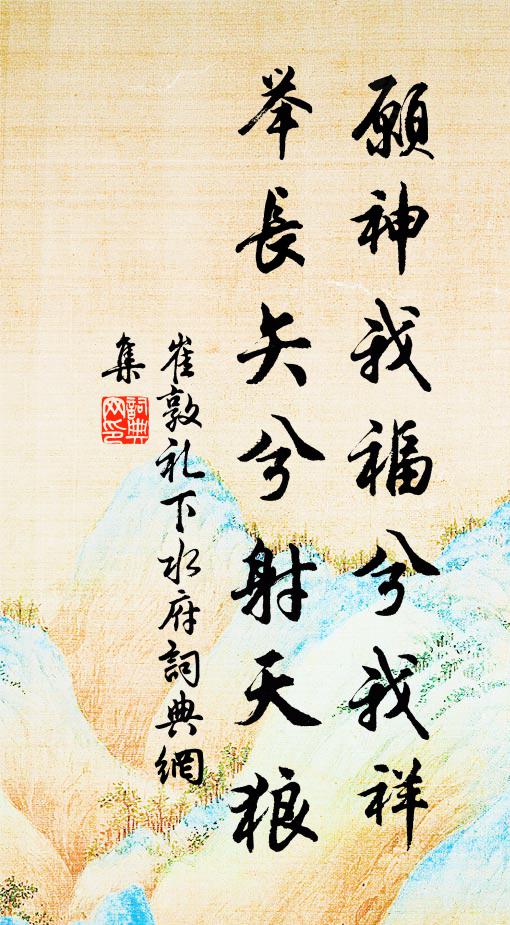 願神我福兮我祥
举長矢兮射天狼
崔敦礼下水府詞典網
集
詞典網印